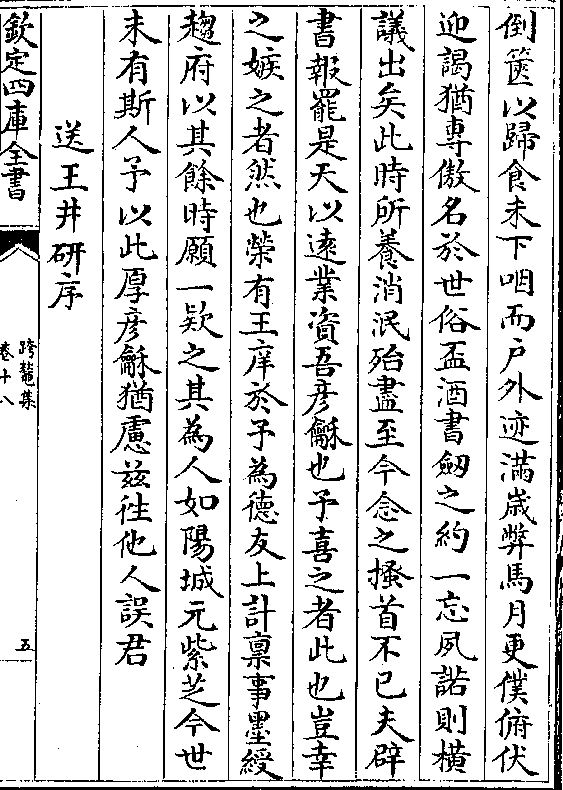 倒篋以歸食未下咽而户外迹滿歳弊馬月更僕俯伏
迎謁猶專傲名於世俗盃酒書劒之約一忘夙諾則横
議出矣此時所養消泯殆盡至今念之搔首不已夫辟
書報罷是天以逺業資吾彦龢也予喜之者此也豈幸
之嫉之者然也榮有王庠於予為德友上計稟事墨綬
趨府以其餘時願一欵之其為人如陽城元紫芝今世
未有斯人予以此厚彦龢猶慮兹徃他人誤君
送王井研序
欽定四庫全書
跨鼇集
卷十八
五